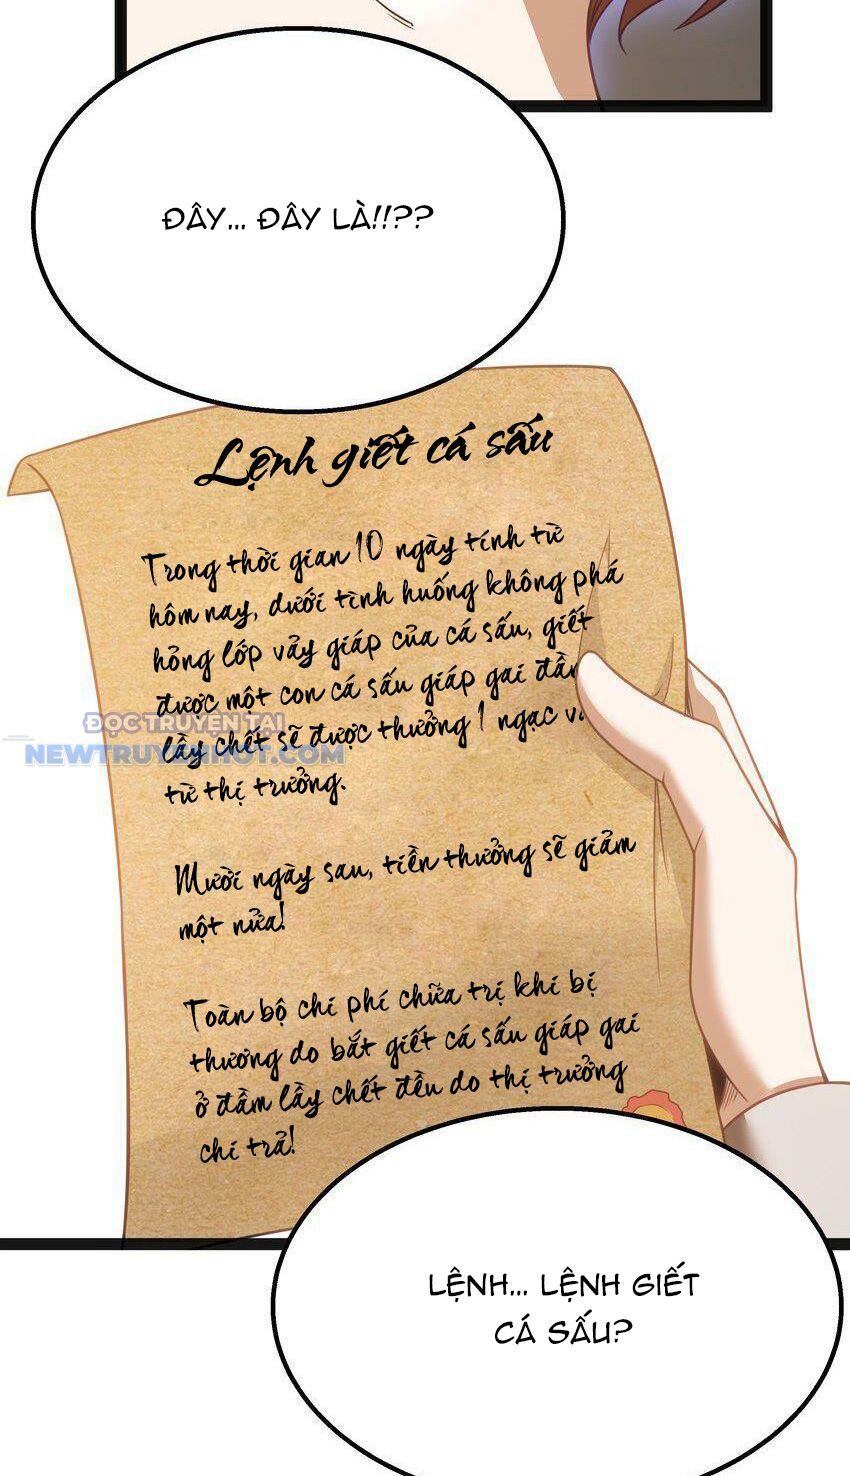 ĐÂY... ĐÂY LÀ!!??
Lệnh giết cá sấu
Trong thời gian 10 ngày tính từ
hôm nay, dưới tình huống không phá
hỏng lớp vảy giáp của cá sấu, giết
được một con cá sấu giáp gai đầm
ĐỌC TRUYỆN TẠI
lầy chết sẽ được thưởng 1 ngạc
từ thị trưởng.
Mười ngày sau, tiền thưởng sẽ giảm
một nửa!
Toàn bộ chi phí chữa trị khi bị
thương do bắt giết cá sấu giáp gai
ở đầm lầy chết đều do thị trưởng
chi trả!
LỆNH... LỆNH GIẾT
CÁ SẤU?